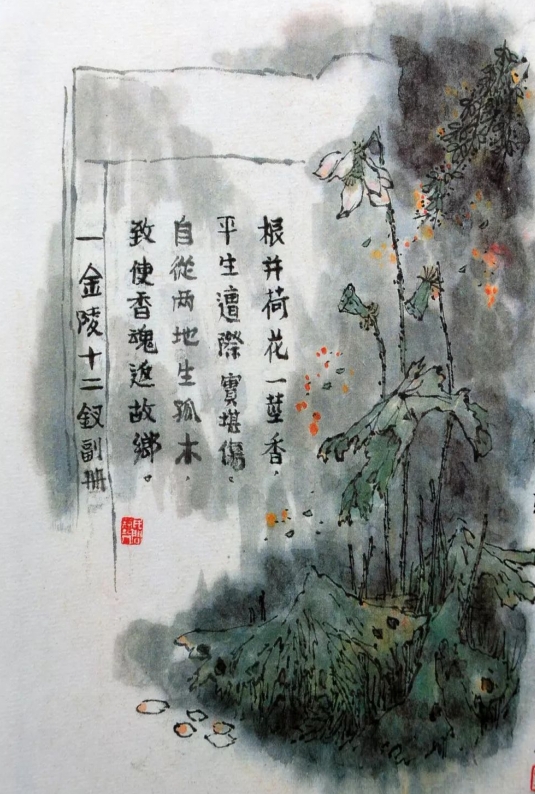 根并荷花一莖香，
平生遭際實堪傷。
自從两地生孤木，
致使香魂返故鄉。
一金陵十二釵副册